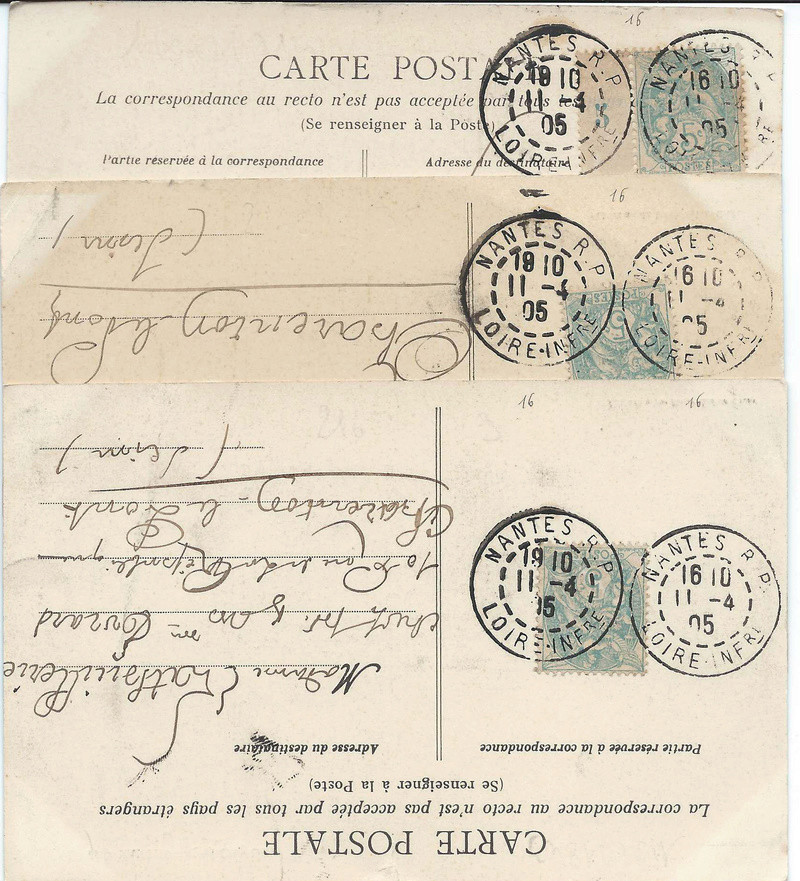 16
CARTE POSTA
La correspondance au recto n'est pas acceptée par tous les
(Se renseigner à la Poste)
Partie réservée à la correspondance
Adresse du destinataire
NANTES R.P.
19 10
11 -4
05
LOIRE-INFRE
NANTES R.P.
16 10
11 -4
05
5
16
NANTES R.P.
19 10
11 -4
05
LOIRE-INFRE
NANTES R.P.
16 10
11 -4
05
LOIRE-INFRE
POSTES
Charenton-le-Pont
(Seine)
16
16
NANTES R.P.
19 10
11 -4
05
LOIRE-INFRE
NANTES R.P.
16 10
11 -4
05
LOIRE-INFRE
CARTE POSTALE
La correspondance au recto n'est pas acceptée par tous les pays étrangers
(Se renseigner à la Poste)
Partie réservée à la correspondance
Adresse du destinataire
Madame
Rue de la République
Charenton-le-Pont
(Seine)